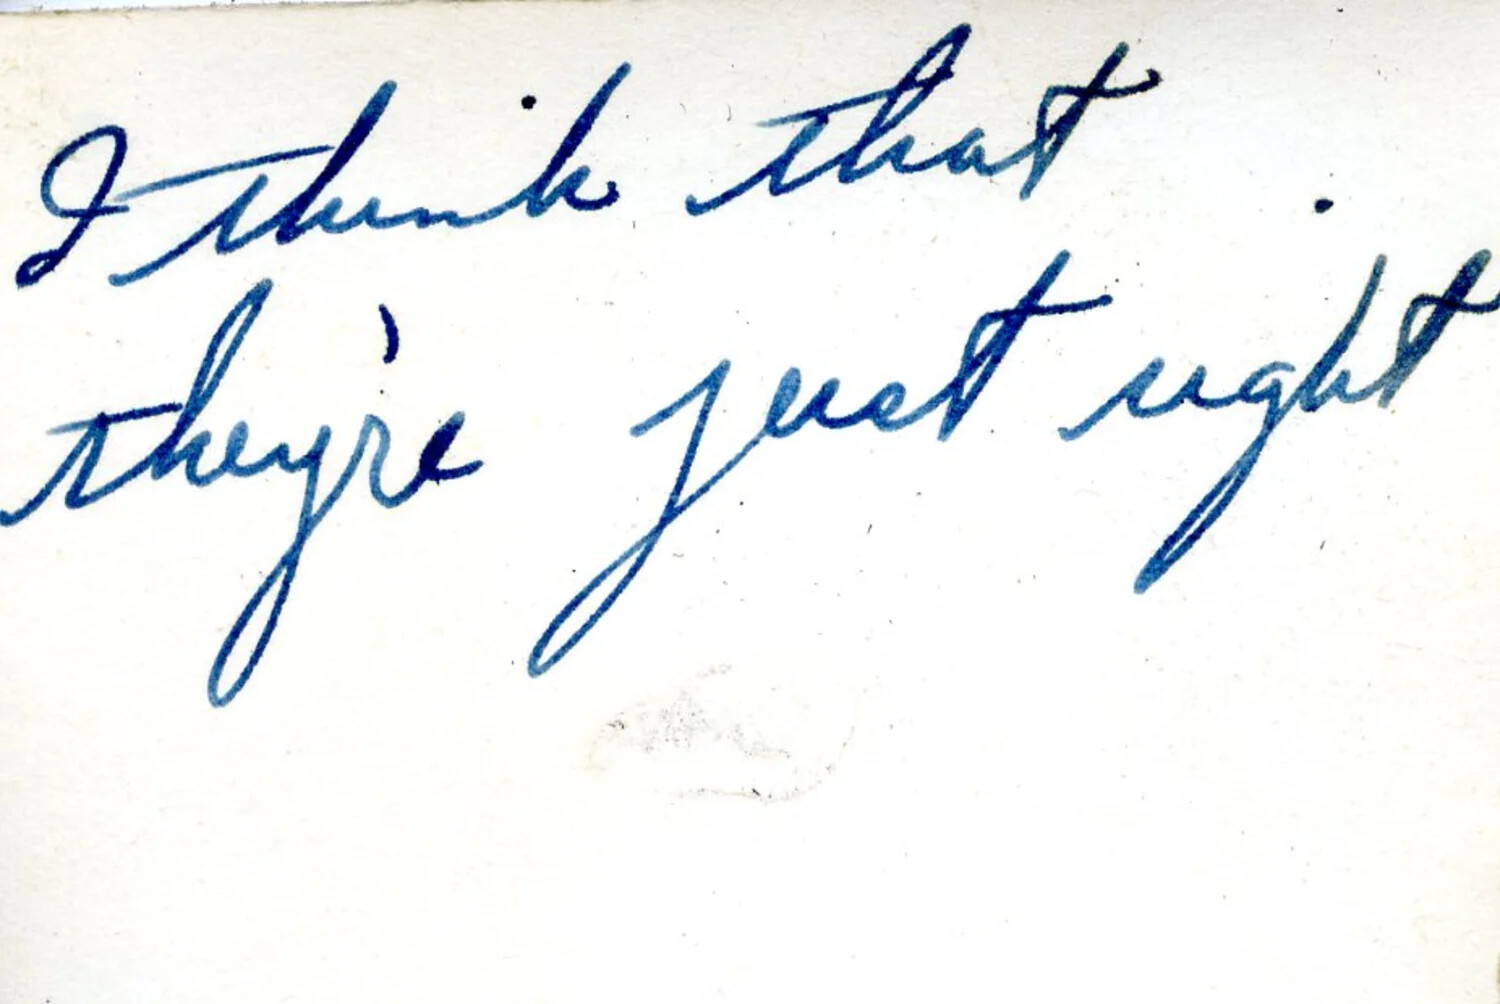 I think that
they're just right